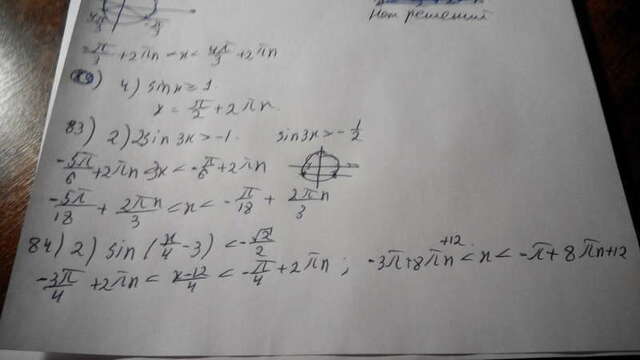 Нет решений
4π/3
-π/3
-π/3 + 2πn < x < 4π/3 + 2πn
80) 4) sin x ≥ 1
x = π/2 + 2πn
83) 2) 2sin 3x > -1. sin 3x > -1/2
-5π/6 + 2πn < 3x < -π/6 + 2πn
-5π/18 + 2πn/3 < x < -π/18 + 2πn/3
84) 2) sin(x/4 - 3) < -√2/2
-3π/4 + 2πn < (x-12)/4 < -π/4 + 2πn ; -3π + 8πn +12 < x < -π + 8πn + 12